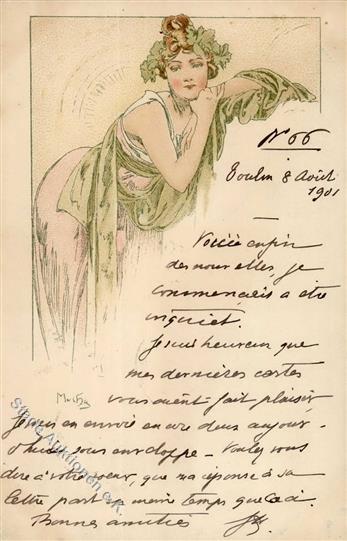 N° 66
Toulon 8 Août
1901
Voici enfin
des nouvelles, je
commençais a etre
inquiet.
Je suis heureux que
mes dernières cartes
Mucha
vous aient fait plaisir
Je vous en envoie encore deux aujour-
d'hui sous enveloppe - Voulez vous
dire à votre soeur, que ma réponse à sa
lettre part en meme temps que ceci.
Bonnes amitiés